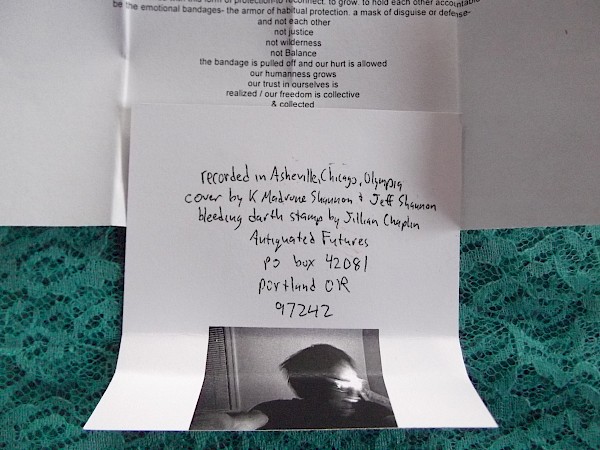 to grow. to hold each other accountable
be the emotional bandages- the armor of habitual protection. a mask of disguise or defense-
and not each other
not justice
not wilderness
not Balance
the bandage is pulled off and our hurt is allowed
our humanness grows
our trust in ourselves is
realized / our freedom is collective
& collected
recorded in Asheville, Chicago, Olympia
cover by K Madrone Shannon & Jeff Shannon
bleeding darth stamps by Jillian Chaplin
Antiquated Futures
po box 42081
portland OR
97242